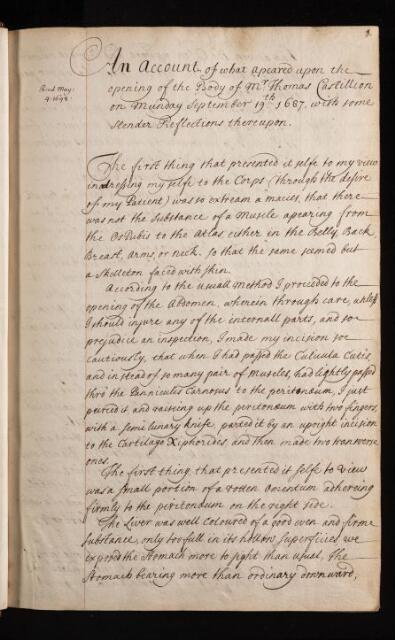 8.
Read May:
4. 1698.
An Account of what apeared upon the
opening of the Body of Mr. Thomas Castillion
on Munday September 19th 1687. with some
slender Reflections thereupon.
The first thing that presented it selfe to my view
in adressing my selfe to the Corps (through the desire
of my Patient) was so extream a macies, that there
was not the substance of a Muscle apearing from
the Os Pubis to the Atlas either in the Belly, Back
Breast, Arms, or neck. so that the same seemed but
a Skilleton faced with skin.
According to the usuall Method I proceeded to the
opening of the Abdomen, wherein through care, unless
I should injure any of the internall parts, and soe
prejudice an inspection, I made my incision soe
cautiously, that when I had passed the Cuticula Cutis,
and in stead of so many pair of Muscles, had lightly passed
thrô the Panniculus Carnosus to the peritonæum, I just
peirced it, and raising up the peritonæum with two fingers,
with a semi lunary knife, parted it by an upright incision
to the Cartilago Xiphoides, and then made two transverse
ones.
The first thing that presented it selfe to view
was a small portion of a rotten Omentum adhereing
firmly to the peritonæum on the right side.
The Liver was well Coloured of a good even and firme
substance, only too full in its hollow superficies, we
exposed the Stomach more to sight than usual, the
Stomach bearing more than ordinary downward,